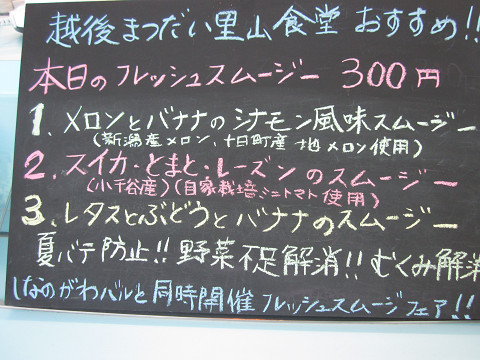 越後まつだい里山食堂 おすすめ!!
本日のフレッシュスムージー 300円
1、メロンとバナナのシナモン風味スムージー
(新潟産メロン、十日町産 地メロン使用)
2、スイカ・とまと・レーズンのスムージー
(小千谷産)(自家栽培ミニトマト使用)
3、レタスとぶどうとバナナのスムージー
夏バテ防止!! 野菜不足解消!! むくみ解消
しなのがわバルと同時開催 フレッシュスムージーフェア!!